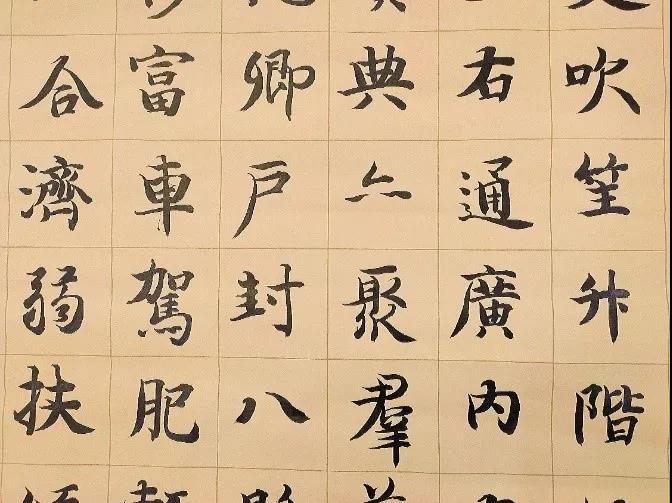 吹笙升階
右通廣内
典亦聚羣
卿戶封八
富車駕肥
合濟弱扶